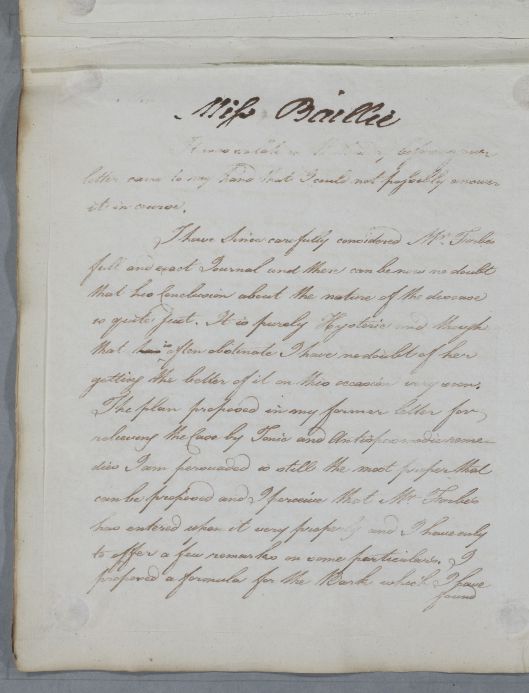 Miss Baillie
It was so late in before your
letter came to my hand that I could not possibly answer
it in course.
I have since carefully considered Mr. Forbes
full and exact Journal and there can be now no doubt
that his Conclusion about the nature of the disease
is quite just. It is purely Hysteric and though
that is often obstinate I have no doubt of her
getting the better of it on this occasion very soon.
The plan proposed in my former letter for
relieving the Case by Tonic and Antispasmodic reme-
dies I am persuaded is still the most proper that
can be proposed and I perceive that Mr. Forbes
has entered upon it very properly and I have only
to offer a few remarks on some particulars. I
proposed a formula for the Bark which I have
found